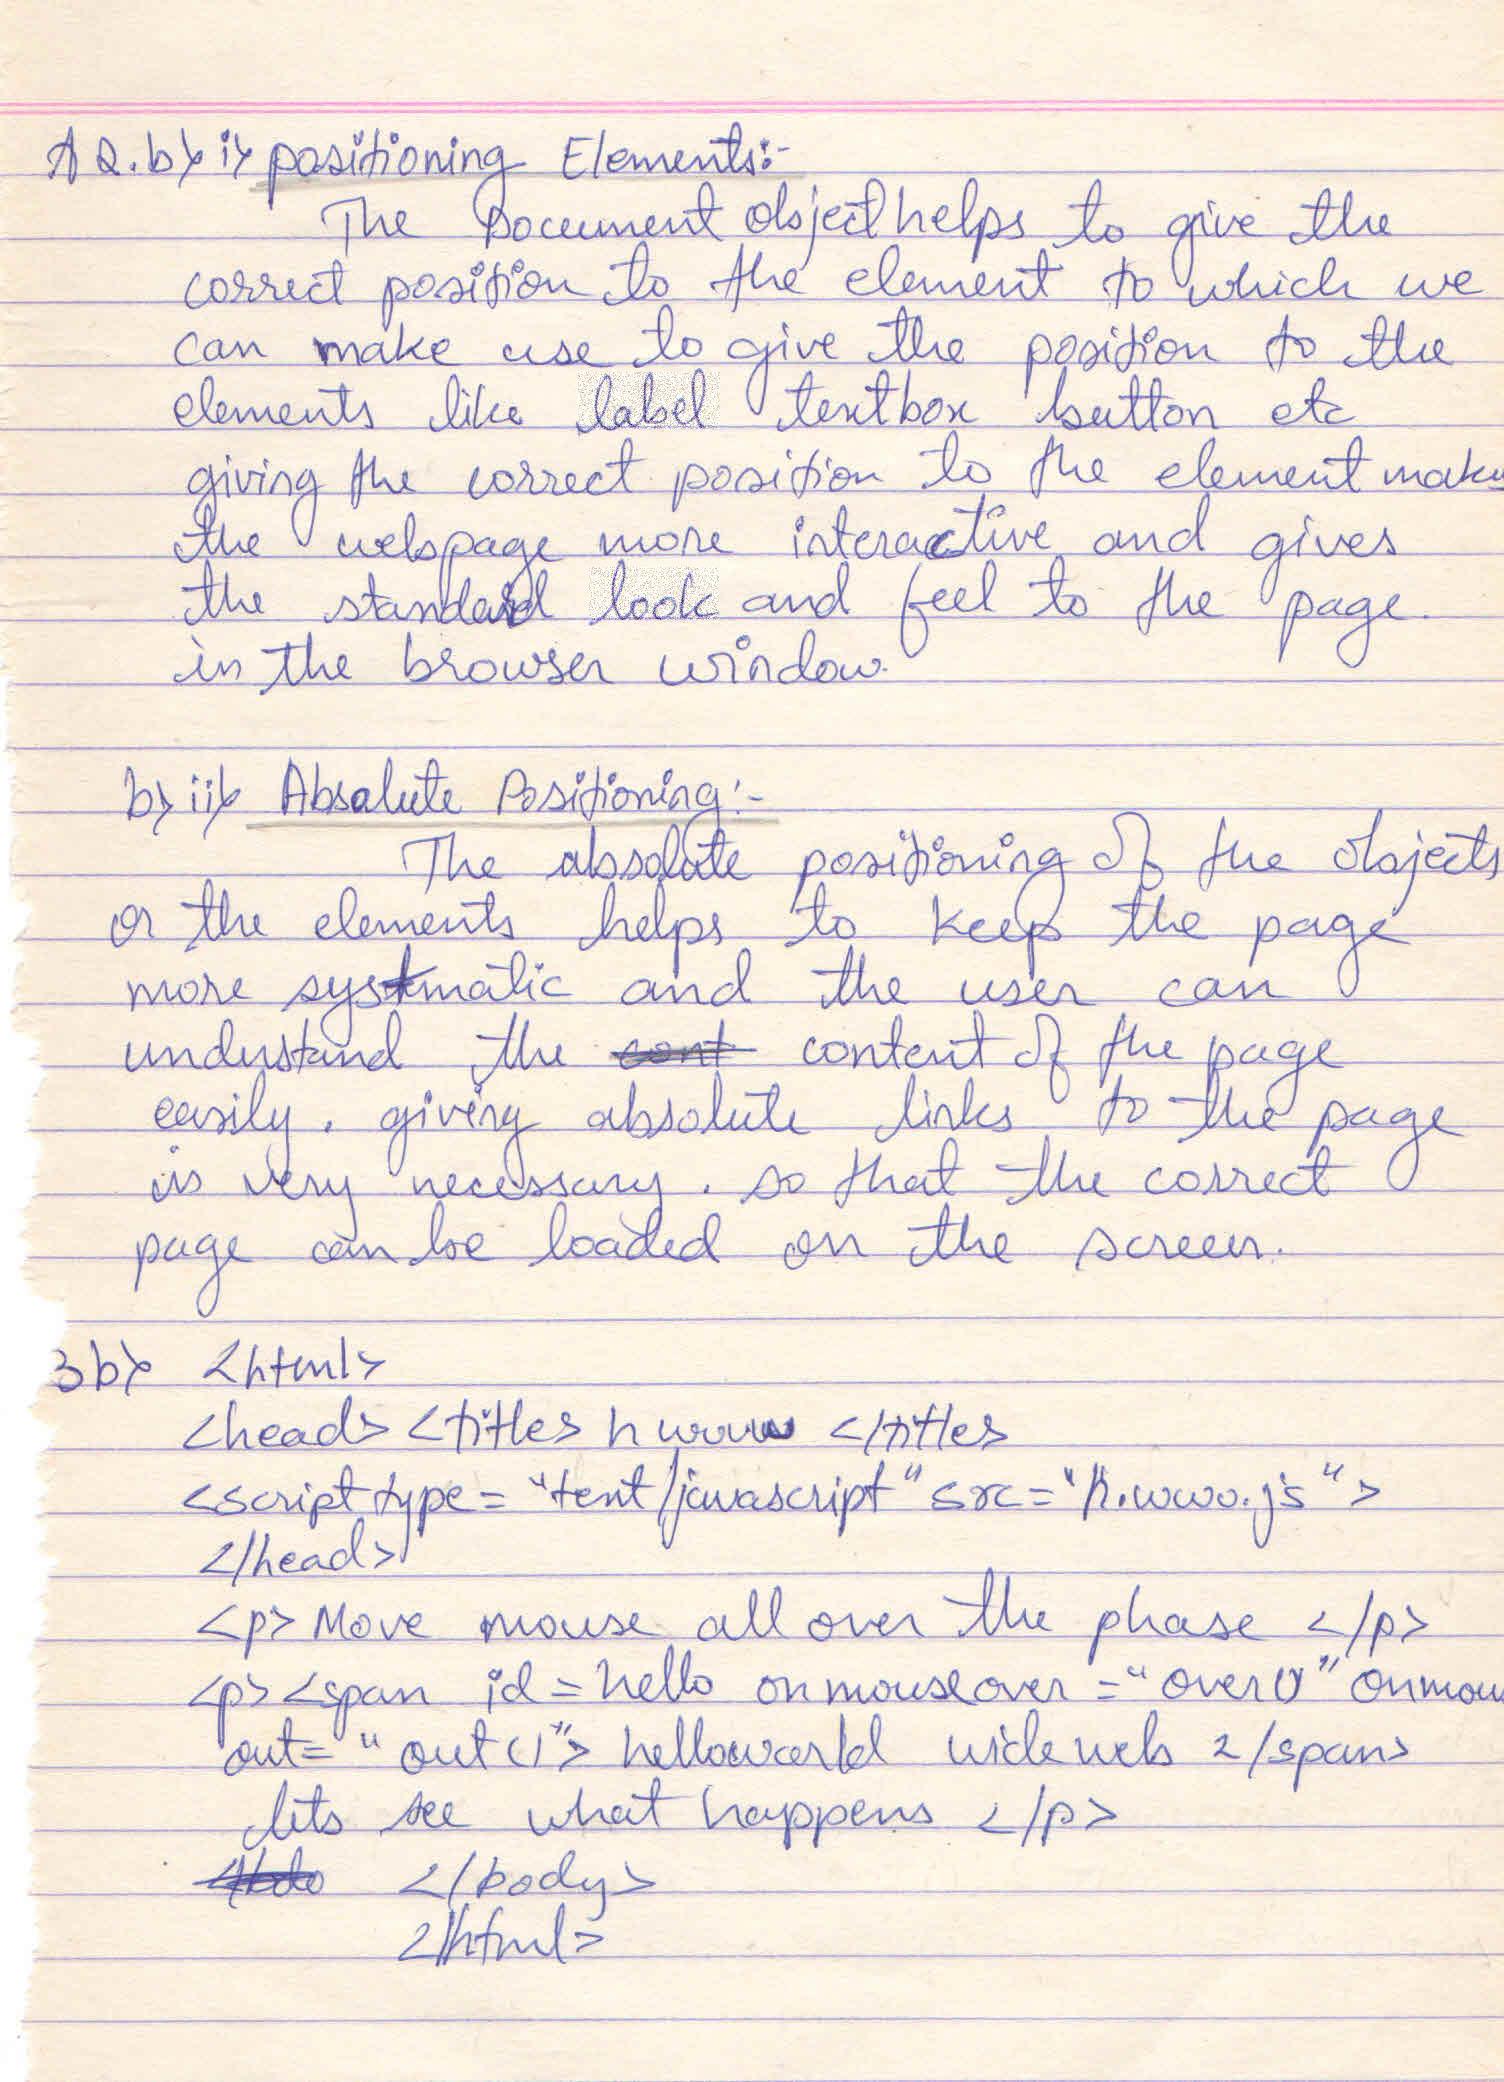 A 2. b> i> positioning Elements:-
The Document object helps to give the
correct position to the element to which we
can make use to give the position to the
elements like label textbox button etc
giving the correct position to the element makes
the webpage more interactive and gives
the standard look and feel to the page.
in the browser window.
b> ii> Absolute Positioning:-
The absolute positioning of the objects
or the elements helps to keep the page
more systmatic and the user can
understand the cont content of the page
easily. giving absolute links to the page
is very necessary. so that the correct
page can be loaded on the screen.
3 b> <html>
<head> <title> h www </title>
<script type = "text/javascript" src = "h.www.js">
</head>
<p> Move mouse all over the phase </p>
<p> <span id = hello onmouseover = "over()" onmou
out = "out()"> helloworld wide web </span>
lets see what happens </p>
</body>
</html>